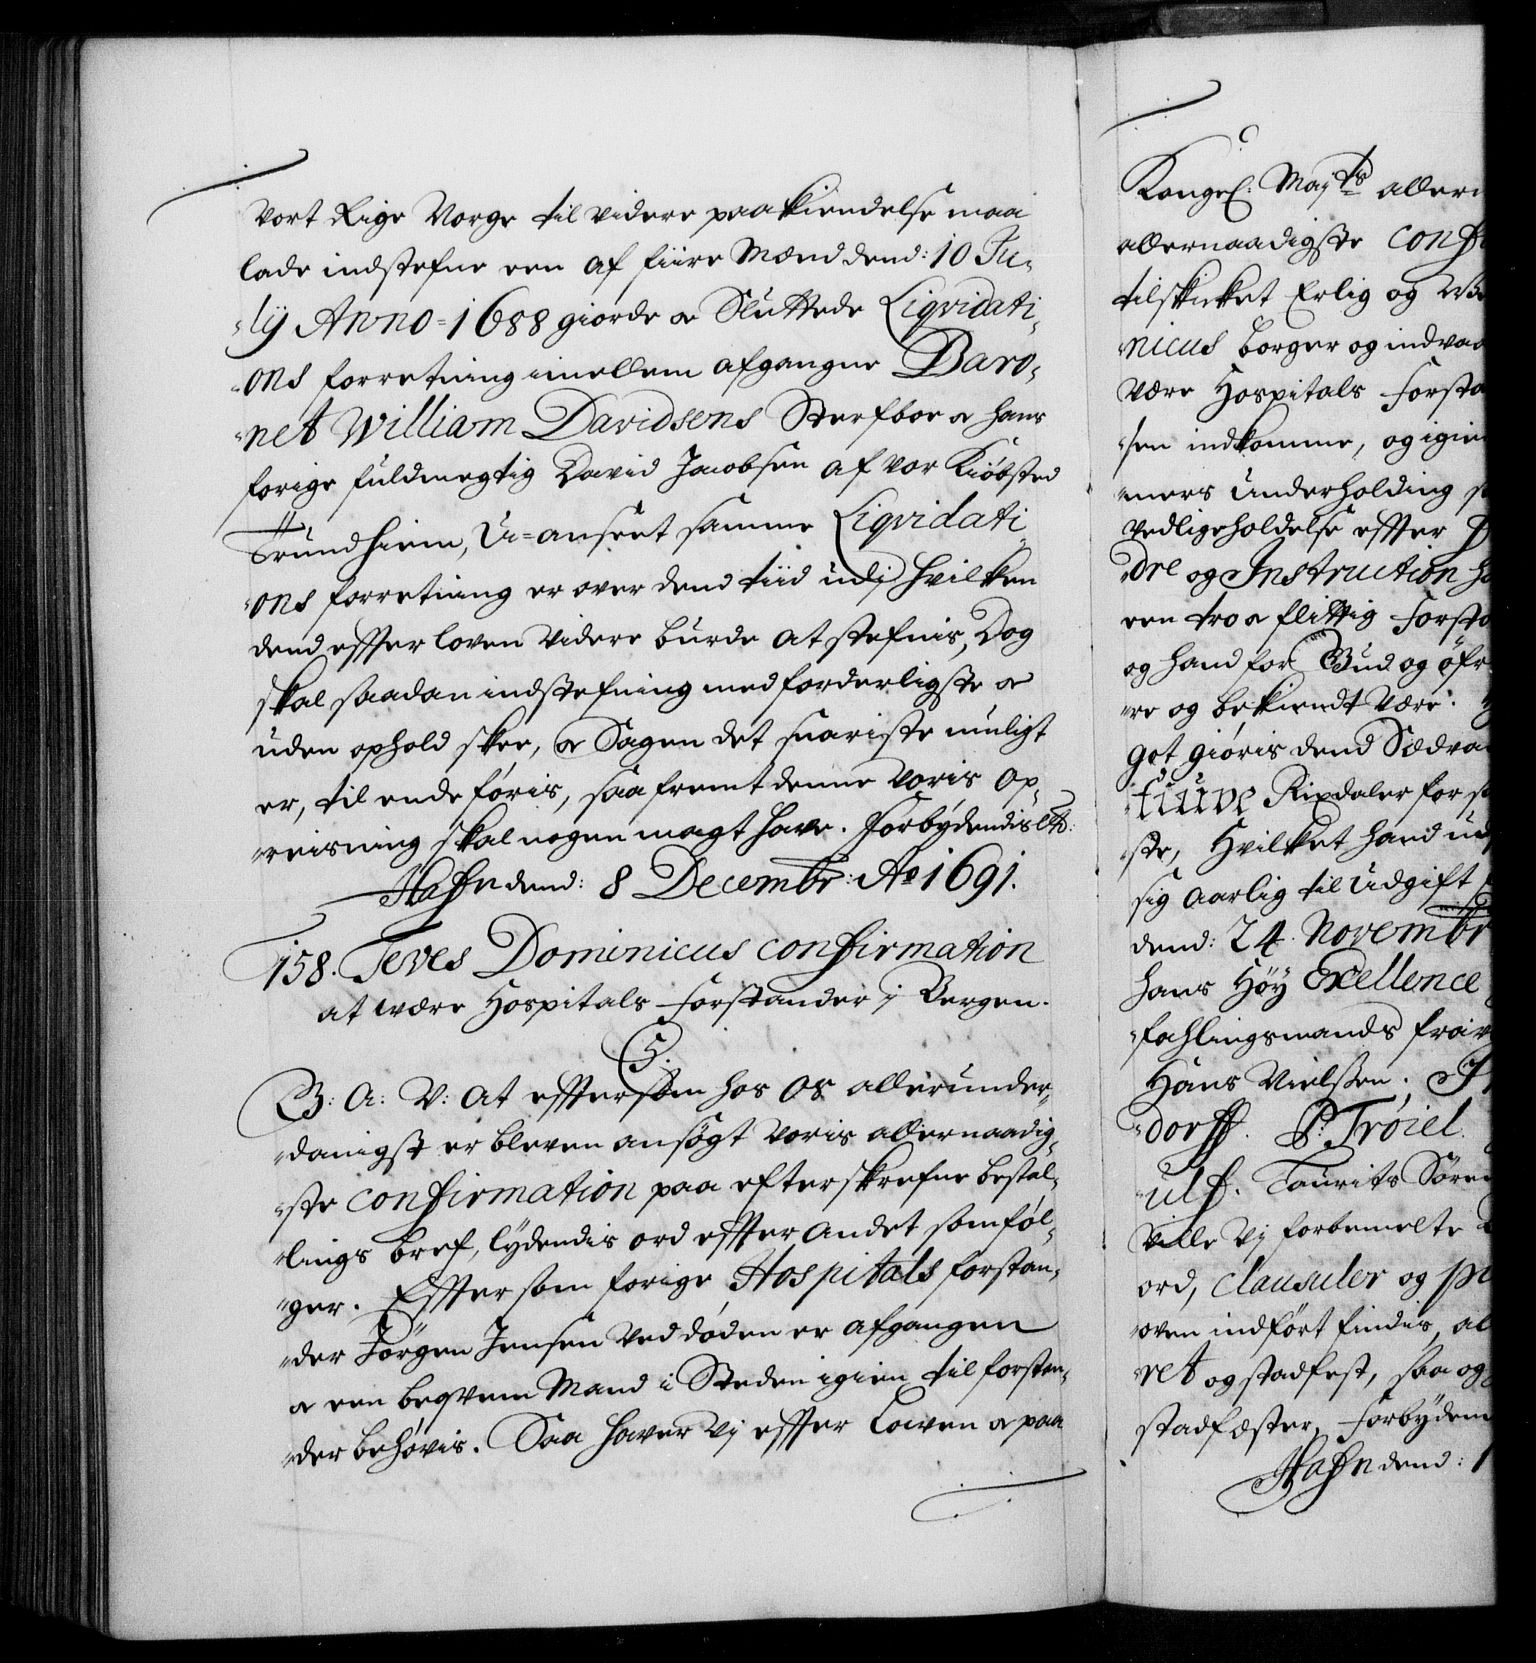 Vort Rige Norge til videre paakiendelse maa
lade indstefne een af fiire Mænd dend: 10 Ju-
lij Anno 1688 giorde oc Sluttede Liqvidati-
ons forretning imellem afgangne Baro-
net William Davidsens Sterfboe oc hans
forige fuldmegtig David Jacobsen af vor Kiöbsted
Trundhiem, U-anseet samme Liqvidati-
ons forretning er over dend tiid udj hvilken
dend effter loven videre burde at stefnis, Dog
skal saadan indstefning med forderligste oc
uden ophold skee, oc Sagen det snariste muligt
er, til ende föris, saa fremt denne Voris Op-
reisning skal nogen magt have. Forbydendis etc:
Haffn dend: 8 Decembr: Ao 1691.
158. Teves Dominicus confirmation
at være Hospitals Forstander j Bergen.
C. 5.
G: A: V: at effter som hos Os allerunder-
danigst er bleven ansögt Voris allernaadig-
ste confirmation paa efterskrefne bestal-
lings bref, lydendis ord effter andet som föl-
ger. Efftersom forige Hospitals forstan-
der Jörgen Jensen ved döden er afgangen
oc een beqvem Mand i Steden igien til forstan-
der behövis. Saa haver Vj effter Loven oc paa
Kongel: Maj:ts allern
allernaadigste Conf
tilskicket Erlig og
nicus borger og indvaa
være Hospitals Forsta
sen indkomme, og igien
mers underholding
vedligeholdelse effter
dre og Instruction h
een tro oc flittig Forsta
og hand for Gud og öfr
re og bekiendt være.
get giöris dend Sædva
tiuve Rixdaler for
ste, Hvilket hand
sig aarlig til udgift
dend: 24 Novembr
hans Höy Exellence
fahlingsmands
Hans Nielssen.
dorff. P: Tröiel.
ulf. Laurits Sören
Ville Vj forbemelte
ord, clausuler og
oven indfört findis, al
ret og stadfest, saa og
stadfæster, Forbyden
Haffn dend: 1